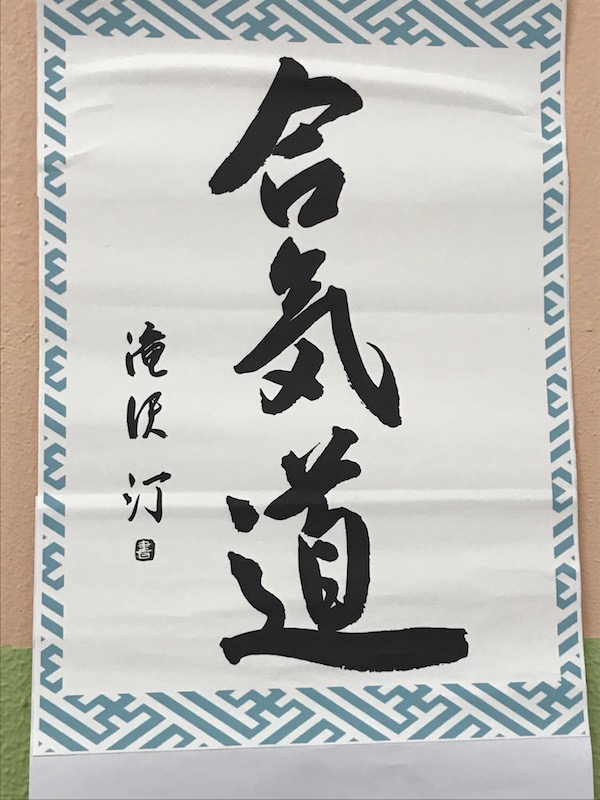 合気道
滝沢汀
書